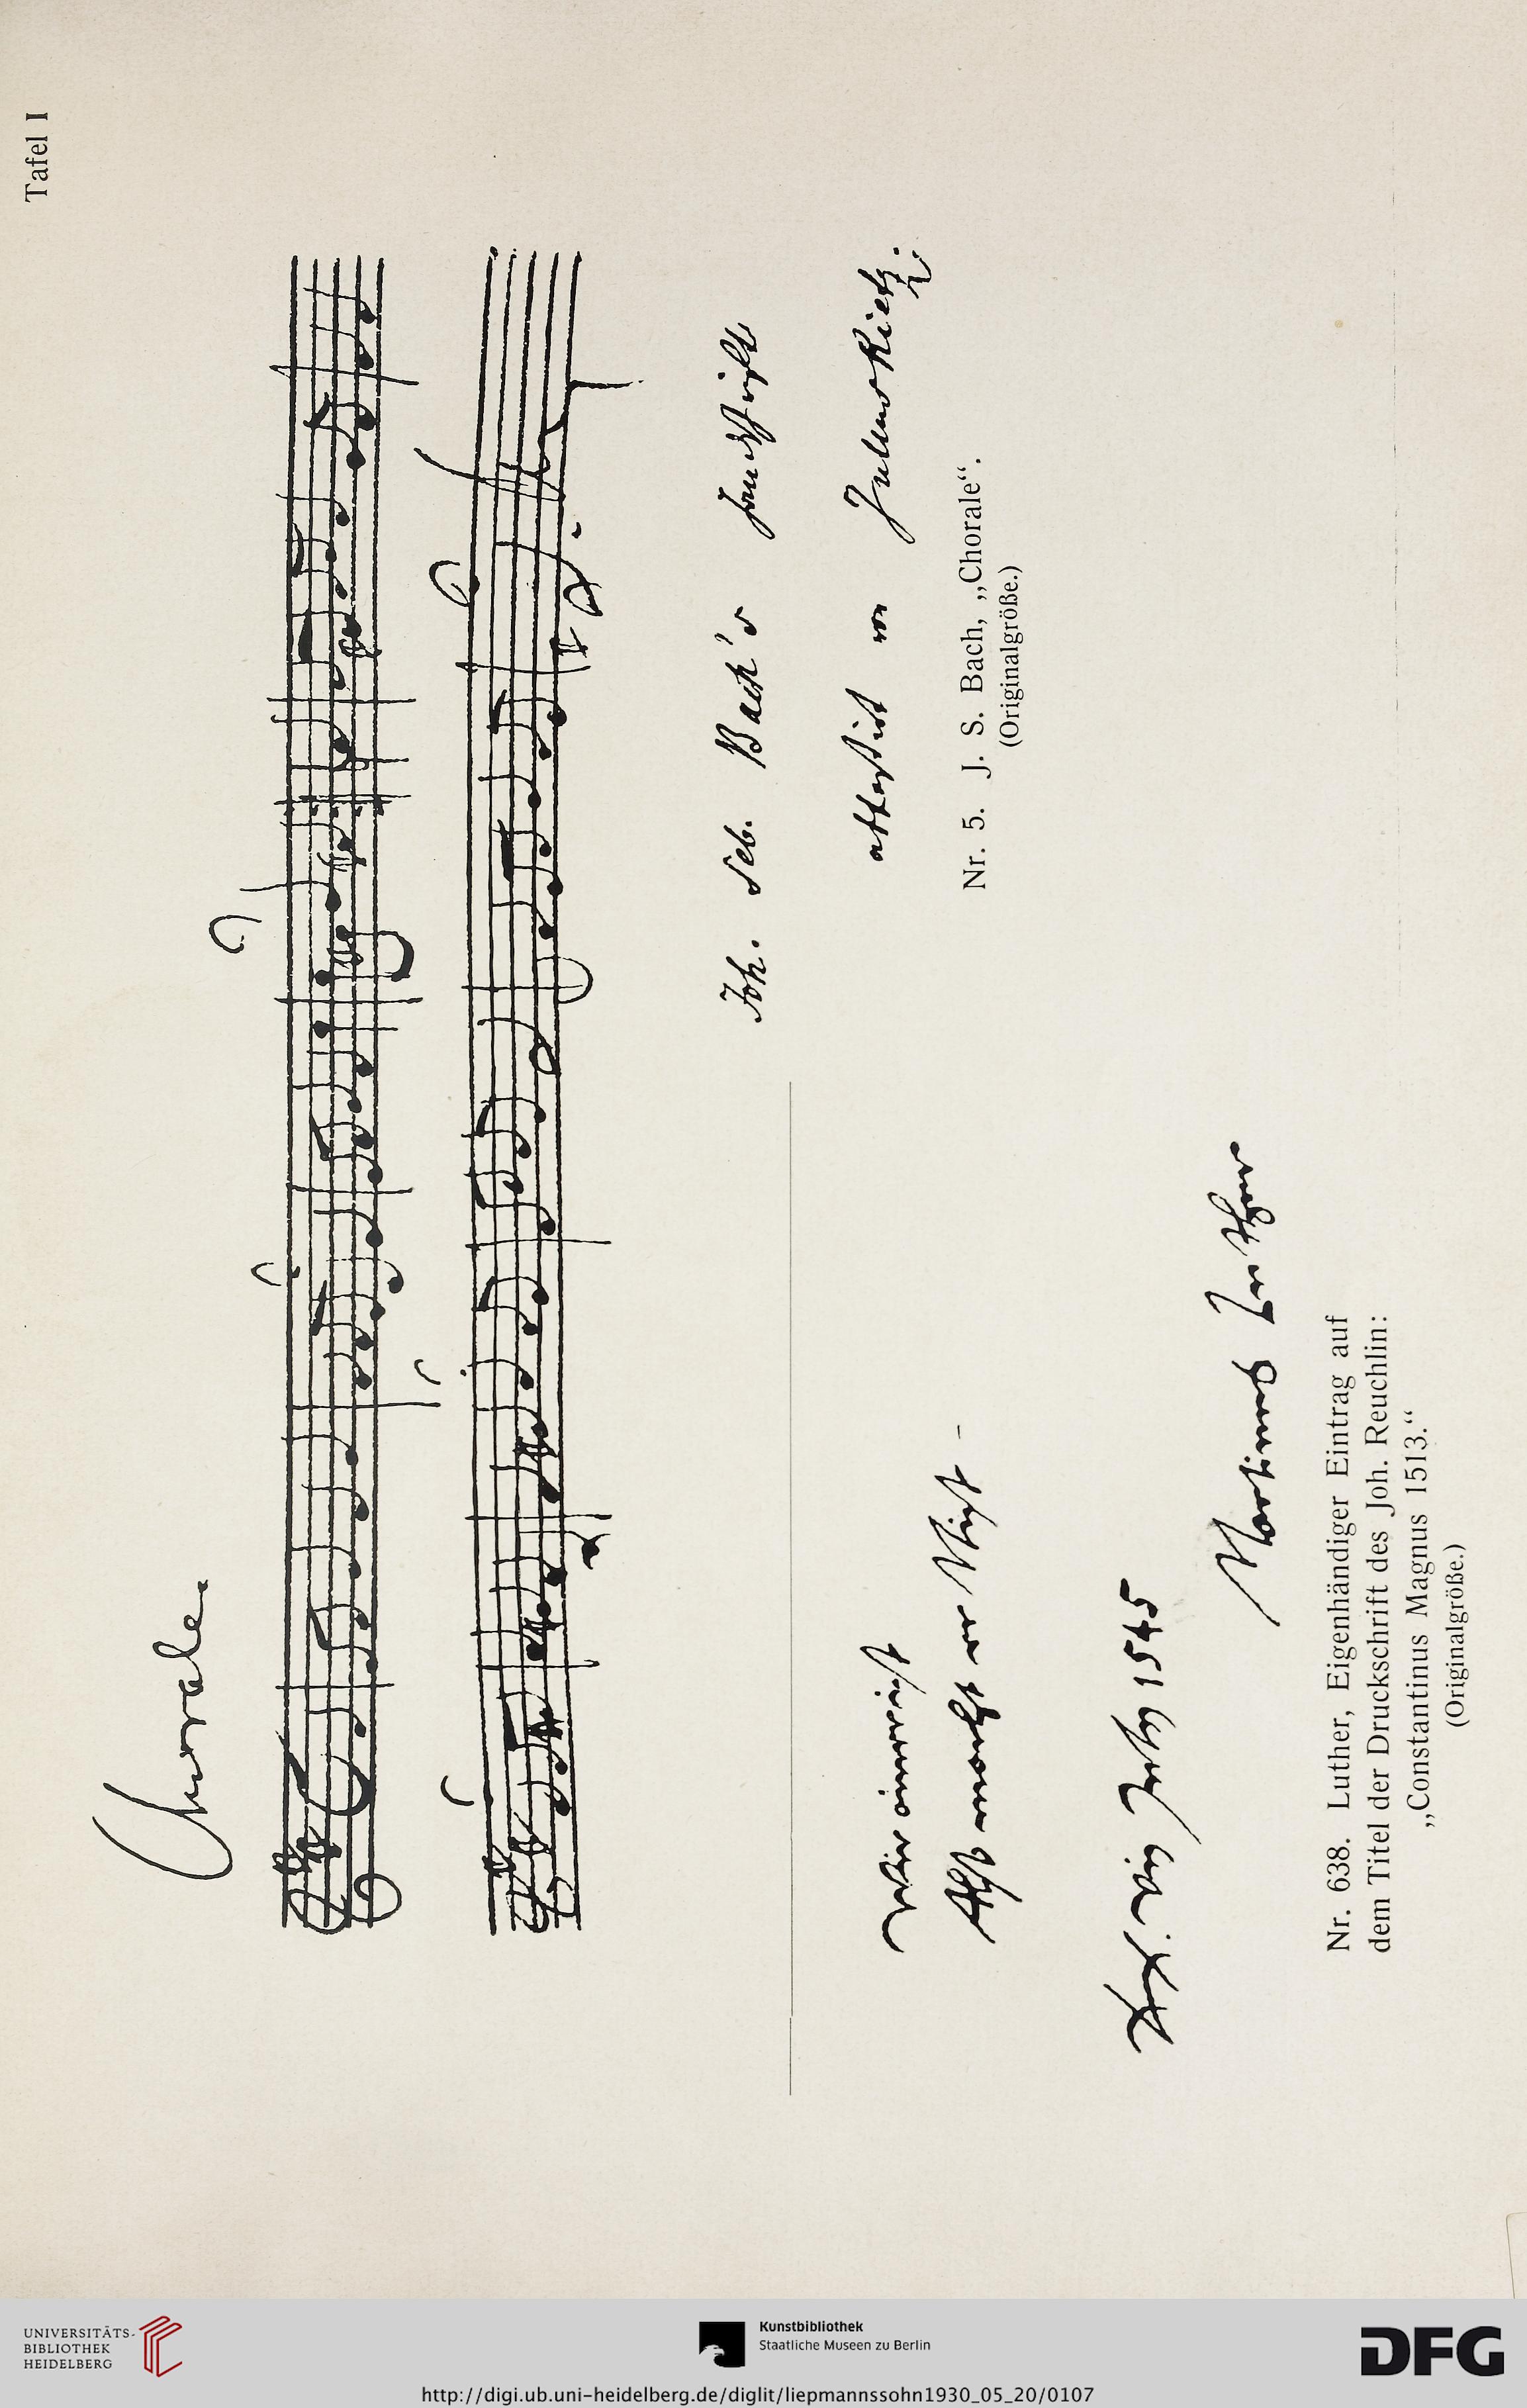 Tafel I
Chorale.
Joh. Seb. Bach's Handschrift
attestirt von Julius Rietz.
Nr. 5. J. S. Bach, „Chorale“.
(Originalgröße.)
1545
Martinus Luther
Nr. 638. Luther, Eigenhändiger Eintrag auf
dem Titel der Druckschrift des Joh. Reuchlin:
„Constantinus Magnus 1513.“
(Originalgröße.)
UNIVERSITÄTS-
BIBLIOTHEK
HEIDELBERG
Kunstbibliothek
Staatliche Museen zu Berlin
DFG
http://digi.ub.uni-heidelberg.de/diglit/liepmannssohn1930_05_20/0107